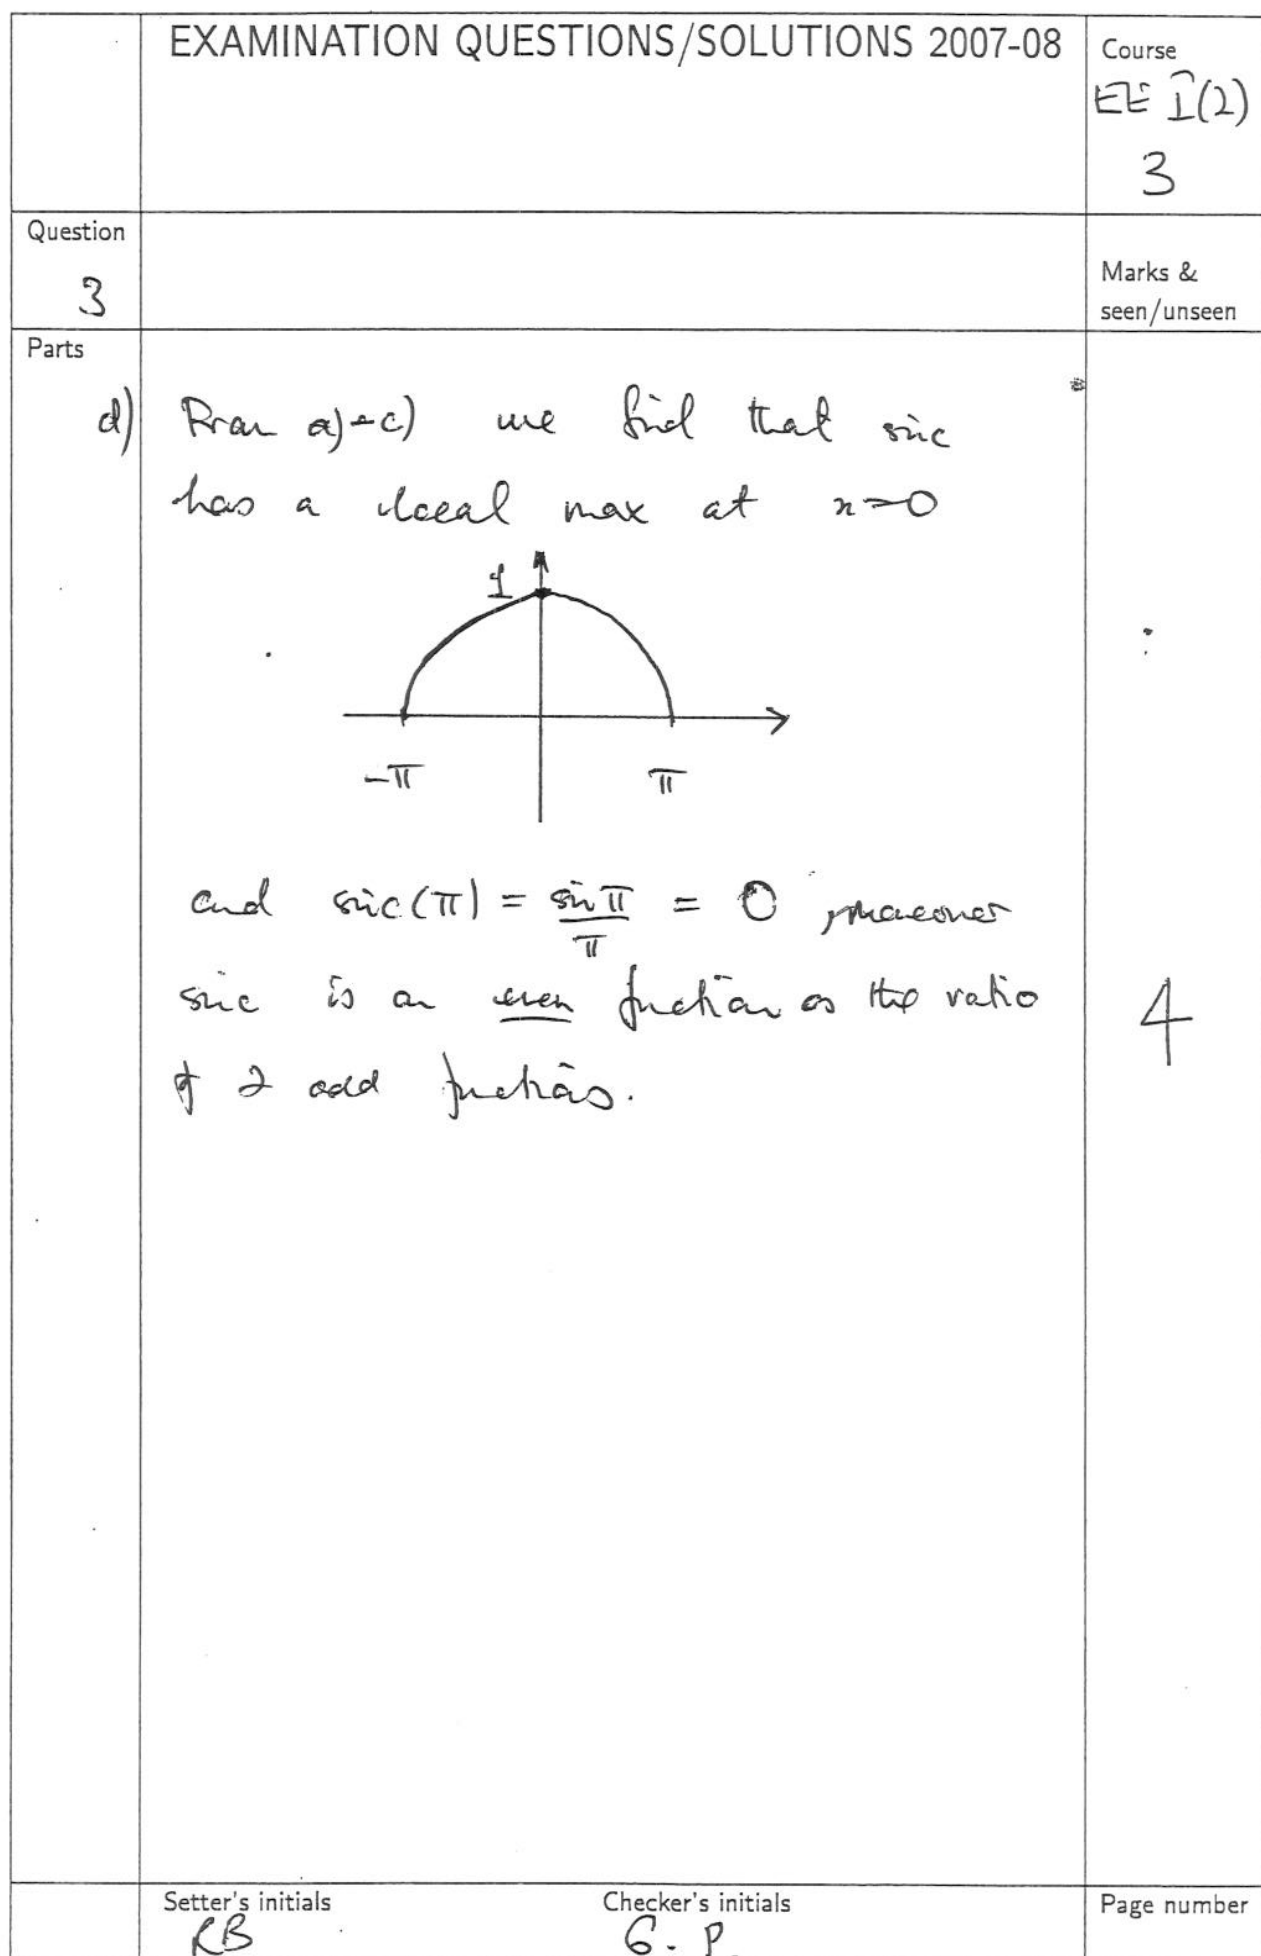 EXAMINATION QUESTIONS/SOLUTIONS 2007-08
Course
EE I(2)
3
Question
3
Marks &
seen/unseen
Parts
d) From a)-c) we find that sinc
has a local max at x=0
1
-π
π
and sinc(π) = sin π / π = 0 , moreover
sinc is an even function as the ratio
of 2 odd functions.
4
Setter's initials
RB
Checker's initials
G. P.
Page number